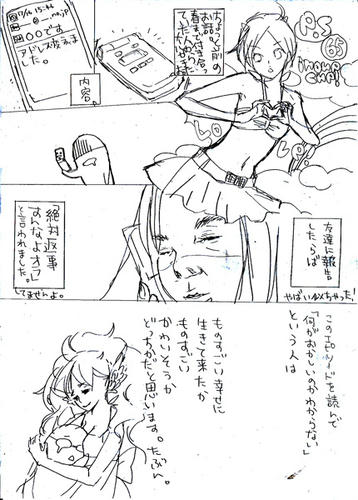 7/16 15:44
@ - .ne.jp
〇〇です
アドレス変えま
した。
内容。
ちょっと前の
お話。
P.S
65
友達に報告
したらば
やばいめちゃった!
「絶対返事
すんなよオラ」
と言われました。
してませんよ。
このエピソードを読んで
「何がおかしいのかわからない」
という人は
ものすごい幸せに
生きて来たか
ものすごい
かわいそうか
どっちかだと思います。たぶん。